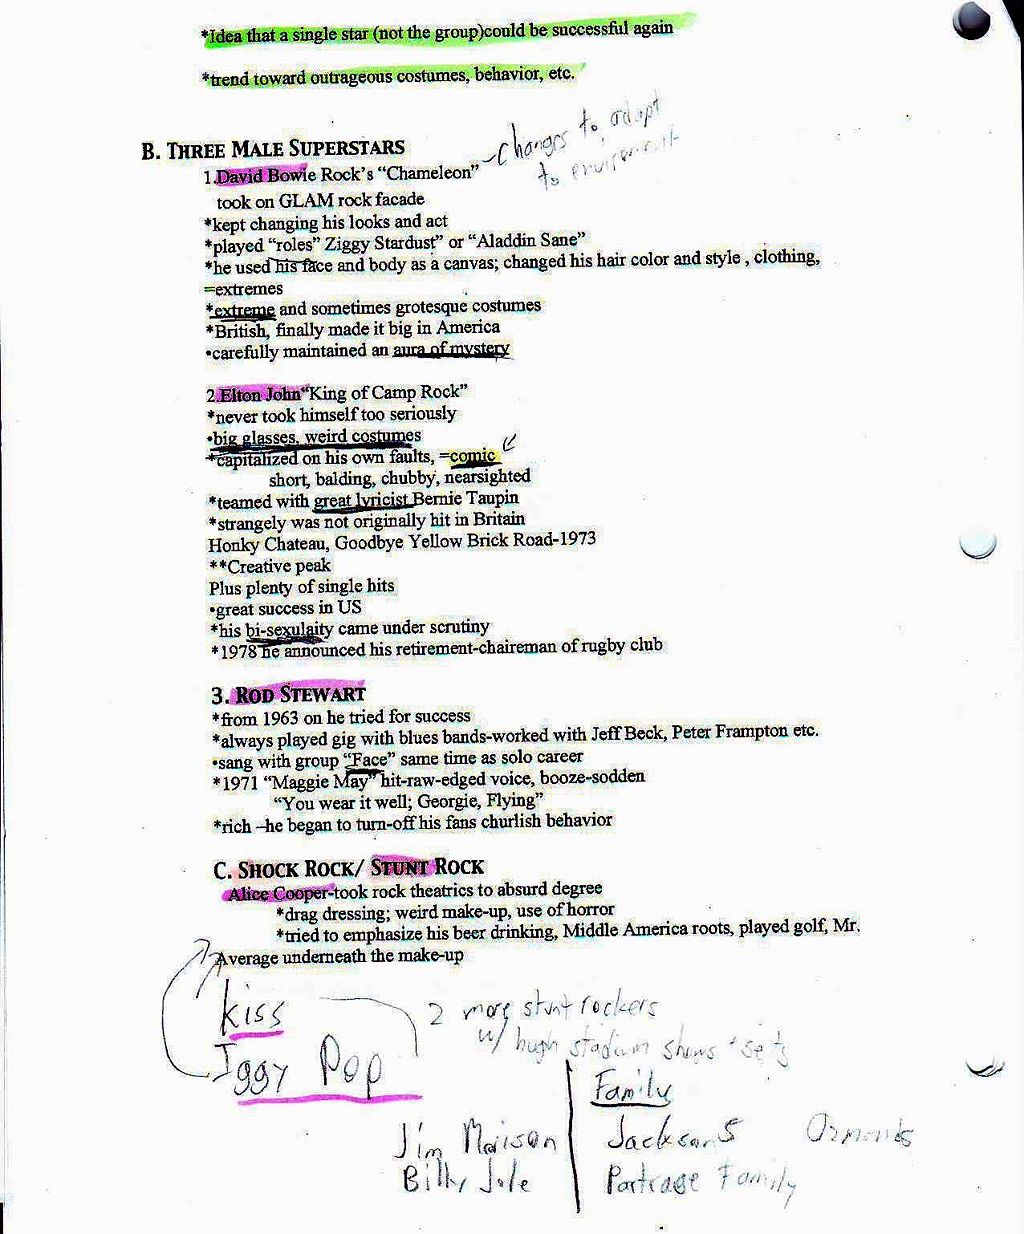 *Idea that a single star (not the group)could be successful again
*trend toward outrageous costumes, behavior, etc.
B. THREE MALE SUPERSTARS
changes to adapt
to enviroment
1.David Bowie Rock's "Chameleon"
took on GLAM rock facade
*kept changing his looks and act
*played "roles" Ziggy Stardust" or "Aladdin Sane"
*he used his face and body as a canvas; changed his hair color and style , clothing,
=extremes
*extreme and sometimes grotesque costumes
*British, finally made it big in America
•carefully maintained an aura of mystery
2.Elton John"King of Camp Rock"
*never took himself too seriously
•big glasses, weird costumes
*capitalized on his own faults, =comic
short, balding, chubby, nearsighted
*teamed with great lyricist Bernie Taupin
*strangely was not originally hit in Britain
Honky Chateau, Goodbye Yellow Brick Road-1973
**Creative peak
Plus plenty of single hits
•great success in US
*his bi-sexulaity came under scrutiny
*1978 he announced his retirement-chaireman of rugby club
3. ROD STEWART
*from 1963 on he tried for success
*always played gig with blues bands-worked with Jeff Beck, Peter Frampton etc.
•sang with group "Face" same time as solo career
*1971 "Maggie May" hit-raw-edged voice, booze-sodden
"You wear it well; Georgie, Flying"
*rich –he began to turn-off his fans churlish behavior
C. SHOCK ROCK/ STUNT ROCK
Alice Cooper-took rock theatrics to absurd degree
*drag dressing; weird make-up, use of horror
*tried to emphasize his beer drinking, Middle America roots, played golf, Mr.
Average underneath the make-up
kiss
2 more stunt rockers
w/ hugh stadium shows + sets
Iggy Pop
Family
Jim Morison
Jacksons
Osmonds
Billy Jole
Partrage Family